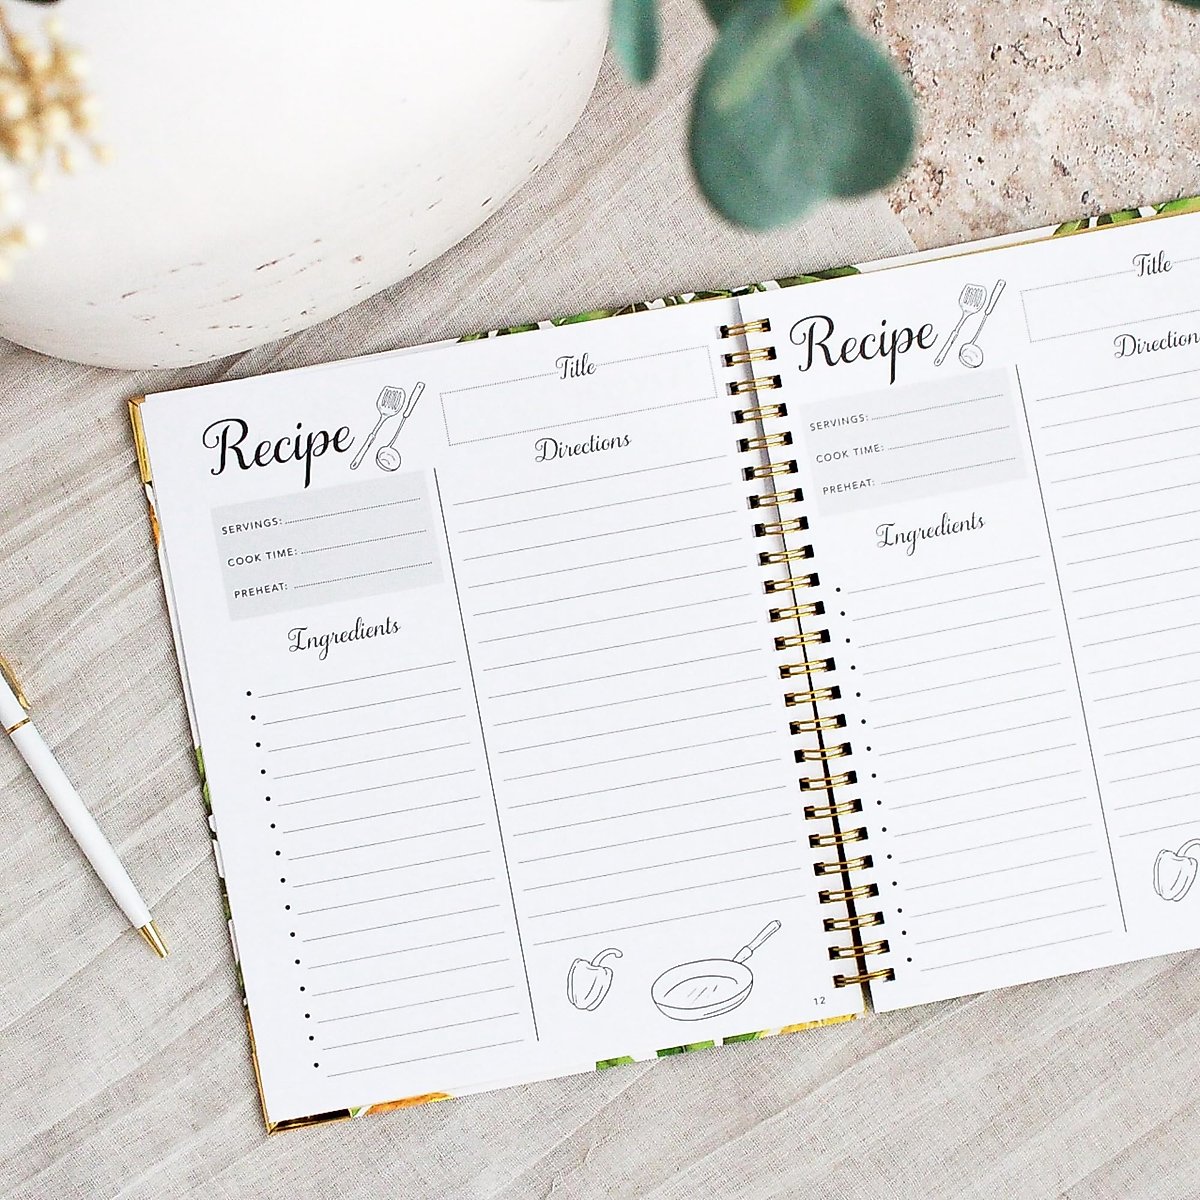 Recipe
SERVINGS:
COOK TIME:
PREHEAT:
Ingredients
Title
Directions
12
Recipe
SERVINGS:
COOK TIME:
PREHEAT:
Ingredients
Title
Direction